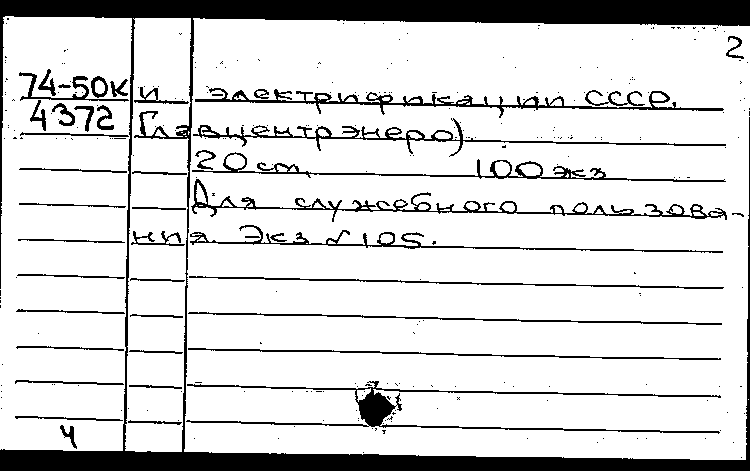 2
74-50к и электрификации СССР.
4372 Главцентрэнерго)
20 см. 100 экз
Для служебного пользова-
ния. Экз № 105.
ч